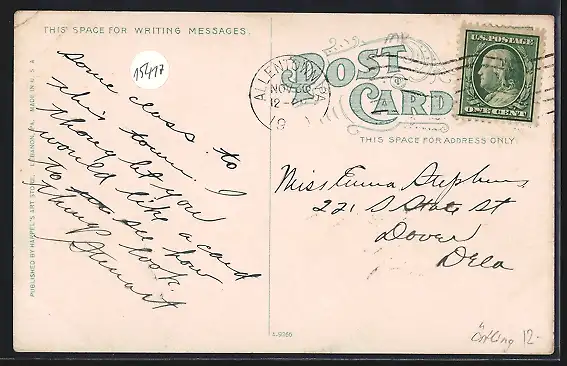 THIS SPACE FOR WRITING MESSAGES.
15417
some class to
this town. I
thought you
would like a card
to see how
things look.
Stewart
PUBLISHED BY HARPEL'S ART STORE, LEBANON, PA. MADE IN U.S.A
POST
CARD
THIS SPACE FOR ADDRESS ONLY.
ALLENTOWN, PA
NOV 30
12-
19
U.S. POSTAGE
ONE CENT
Miss Emma Stephens
221 S State St
Dover
Dela
A-9366
12.-